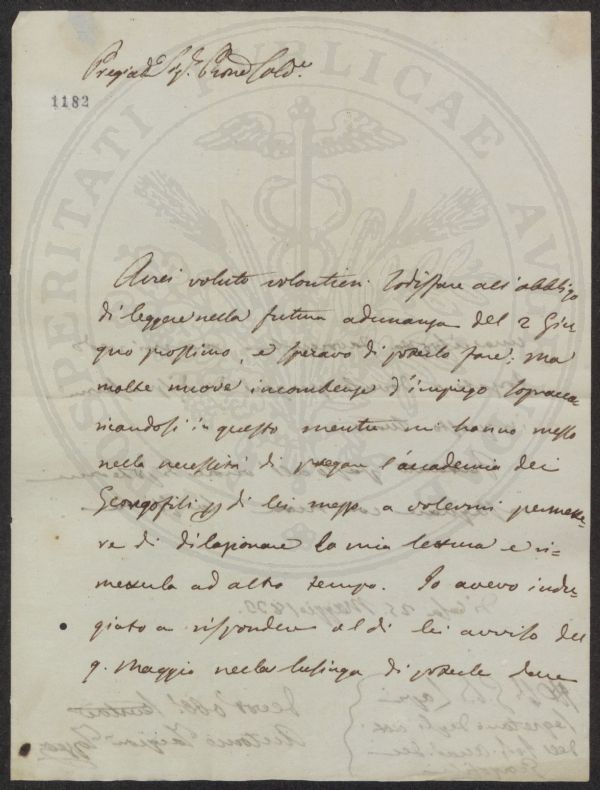 Pregiat.e Sig.e Prone Cold.e
1182
PROSPERITATI PUBLICAE AU
Avrei voluto volontieri sodisfare all'obbligo
di leggere nella futura adunanza del 2 Giu-
gno prossimo, e speravo di poterlo fare; ma
molte nuove incombenze d'impiego sopracca-
ricandosi in questo mentre mi hanno messo
nella necessità di pregare l'accademia dei
Georgofili p di lei mezzo a volermi permette-
re di dilazionare la mia lettura e ri-
metterla ad altro tempo. Io avevo indu-
giato a rispondere al di lei avviso del
9. Maggio nella lusinga di poterle dare